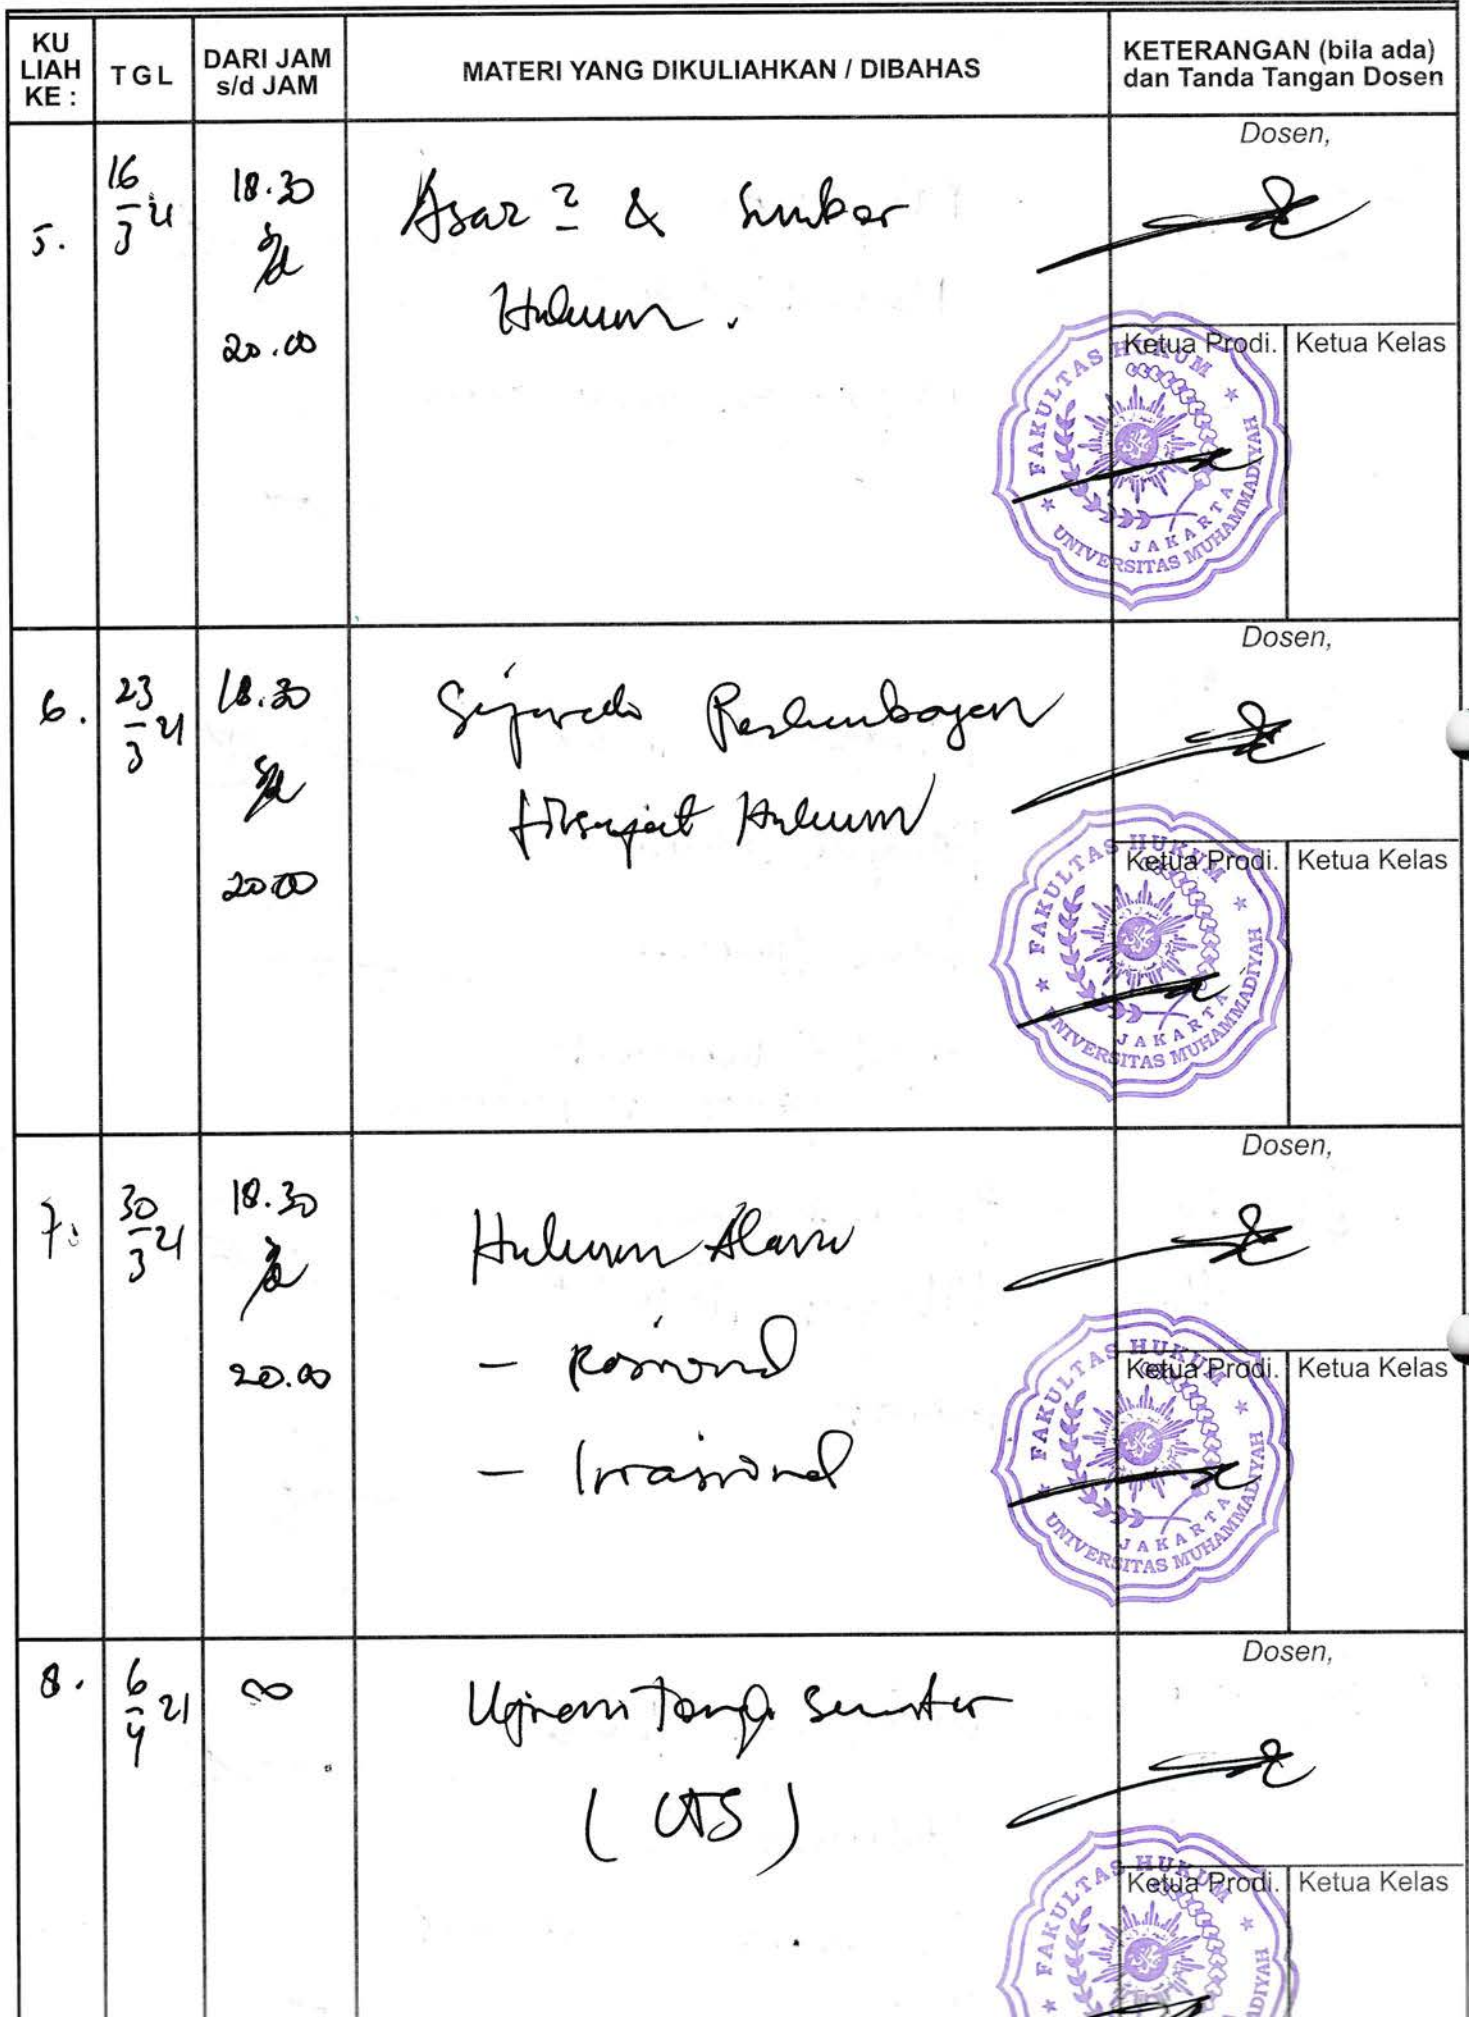 KU LIAH KE :
TGL
DARI JAM s/d JAM
MATERI YANG DIKULIAHKAN / DIBAHAS
KETERANGAN (bila ada)
dan Tanda Tangan Dosen
5.
16/3 21
18.30
s/d
20.00
Asas 2 & Sumber
Hukum.
Dosen,
Ketua Prodi.
Ketua Kelas
FAKULTAS HUKUM
UNIVERSITAS MUHAMMADIYAH
JAKARTA
6.
23/3 21
18.30
s/d
20.00
Sejarah Perkembangan
Filsafat Hukum
Dosen,
Ketua Prodi.
Ketua Kelas
FAKULTAS HUKUM
UNIVERSITAS MUHAMMADIYAH
JAKARTA
7.
30/3 21
18.30
s/d
20.00
Hukum Alam
- Rasional
- Irrasional
Dosen,
Ketua Prodi.
Ketua Kelas
FAKULTAS HUKUM
UNIVERSITAS MUHAMMADIYAH
JAKARTA
8.
6/4 21
∞
Ujian Tengah Semester
(UTS)
Dosen,
Ketua Prodi.
Ketua Kelas
FAKULTAS HUKUM